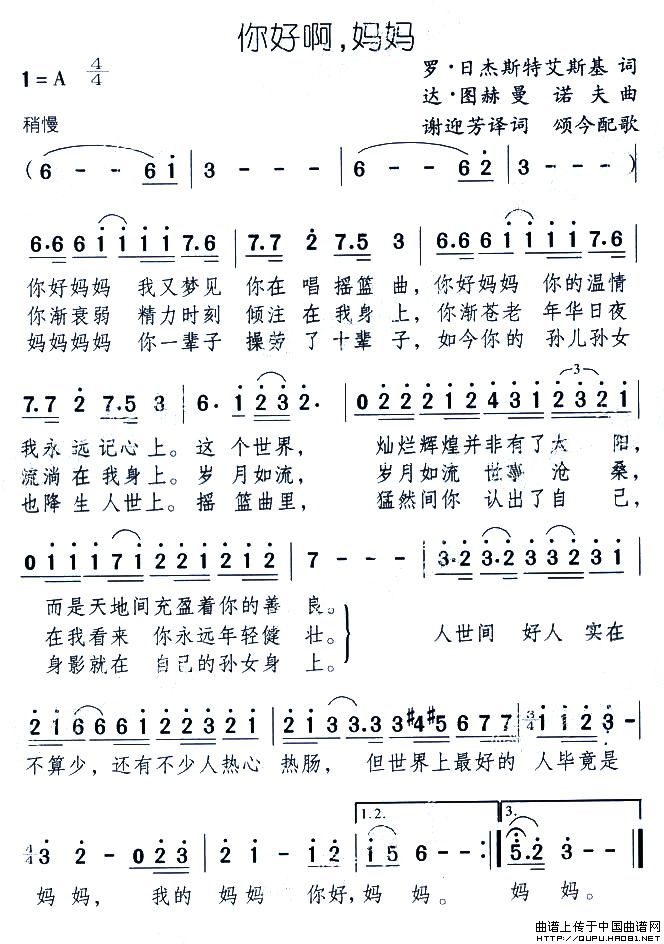 你好啊,妈妈
1=A 4/4
罗·日杰斯特艾斯基 词
达·图赫曼 诺夫曲
稍慢
谢迎芳译词 颂今配歌
(6 - - 6i | 3 - - - | 6 - - 62 | 3 - - -)
6.66611117.6 | 7.7 2 7.5 3 | 6.66611117.6
你好妈妈 我又梦见 你在唱摇篮曲,你好妈妈 你的温情
你渐衰弱 精力时刻 倾注在我身上,你渐苍老 年华日夜
妈妈妈妈 你一辈子 操劳了十辈子,如今你的 孙儿孙女
7.7 2 7.5 3 | 6. 1 23 2. | 022212431 2321
3
我永远记心上。这个世界, 灿烂辉煌并非有了太阳,
流淌在我身上。岁月如流, 岁月如流 世事沧桑,
也降生人世上。摇篮曲里, 猛然间你 认出了自己,
011171221212 | 7 - - - | 3.2 3.2 3231
而是天地间充盈着你的善良。
在我看来 你永远年轻健壮。
身影就在 自己的孙女身上。
人世间 好人 实在
216661222321 | 21333.33#4#5677 | 3/4 1122 3 -
不算少,还有不少人热心 热肠, 但世界上最好的 人毕竟是
1.2.
3.
4/4 3 2 - 023 | 21 - 12 | 15 6 - - :| 5.2 3 - -
妈妈, 我的 妈妈 你好,妈妈。 妈妈。
曲谱上传于中国曲谱网
HTTP://QUPU.HAO81.NET